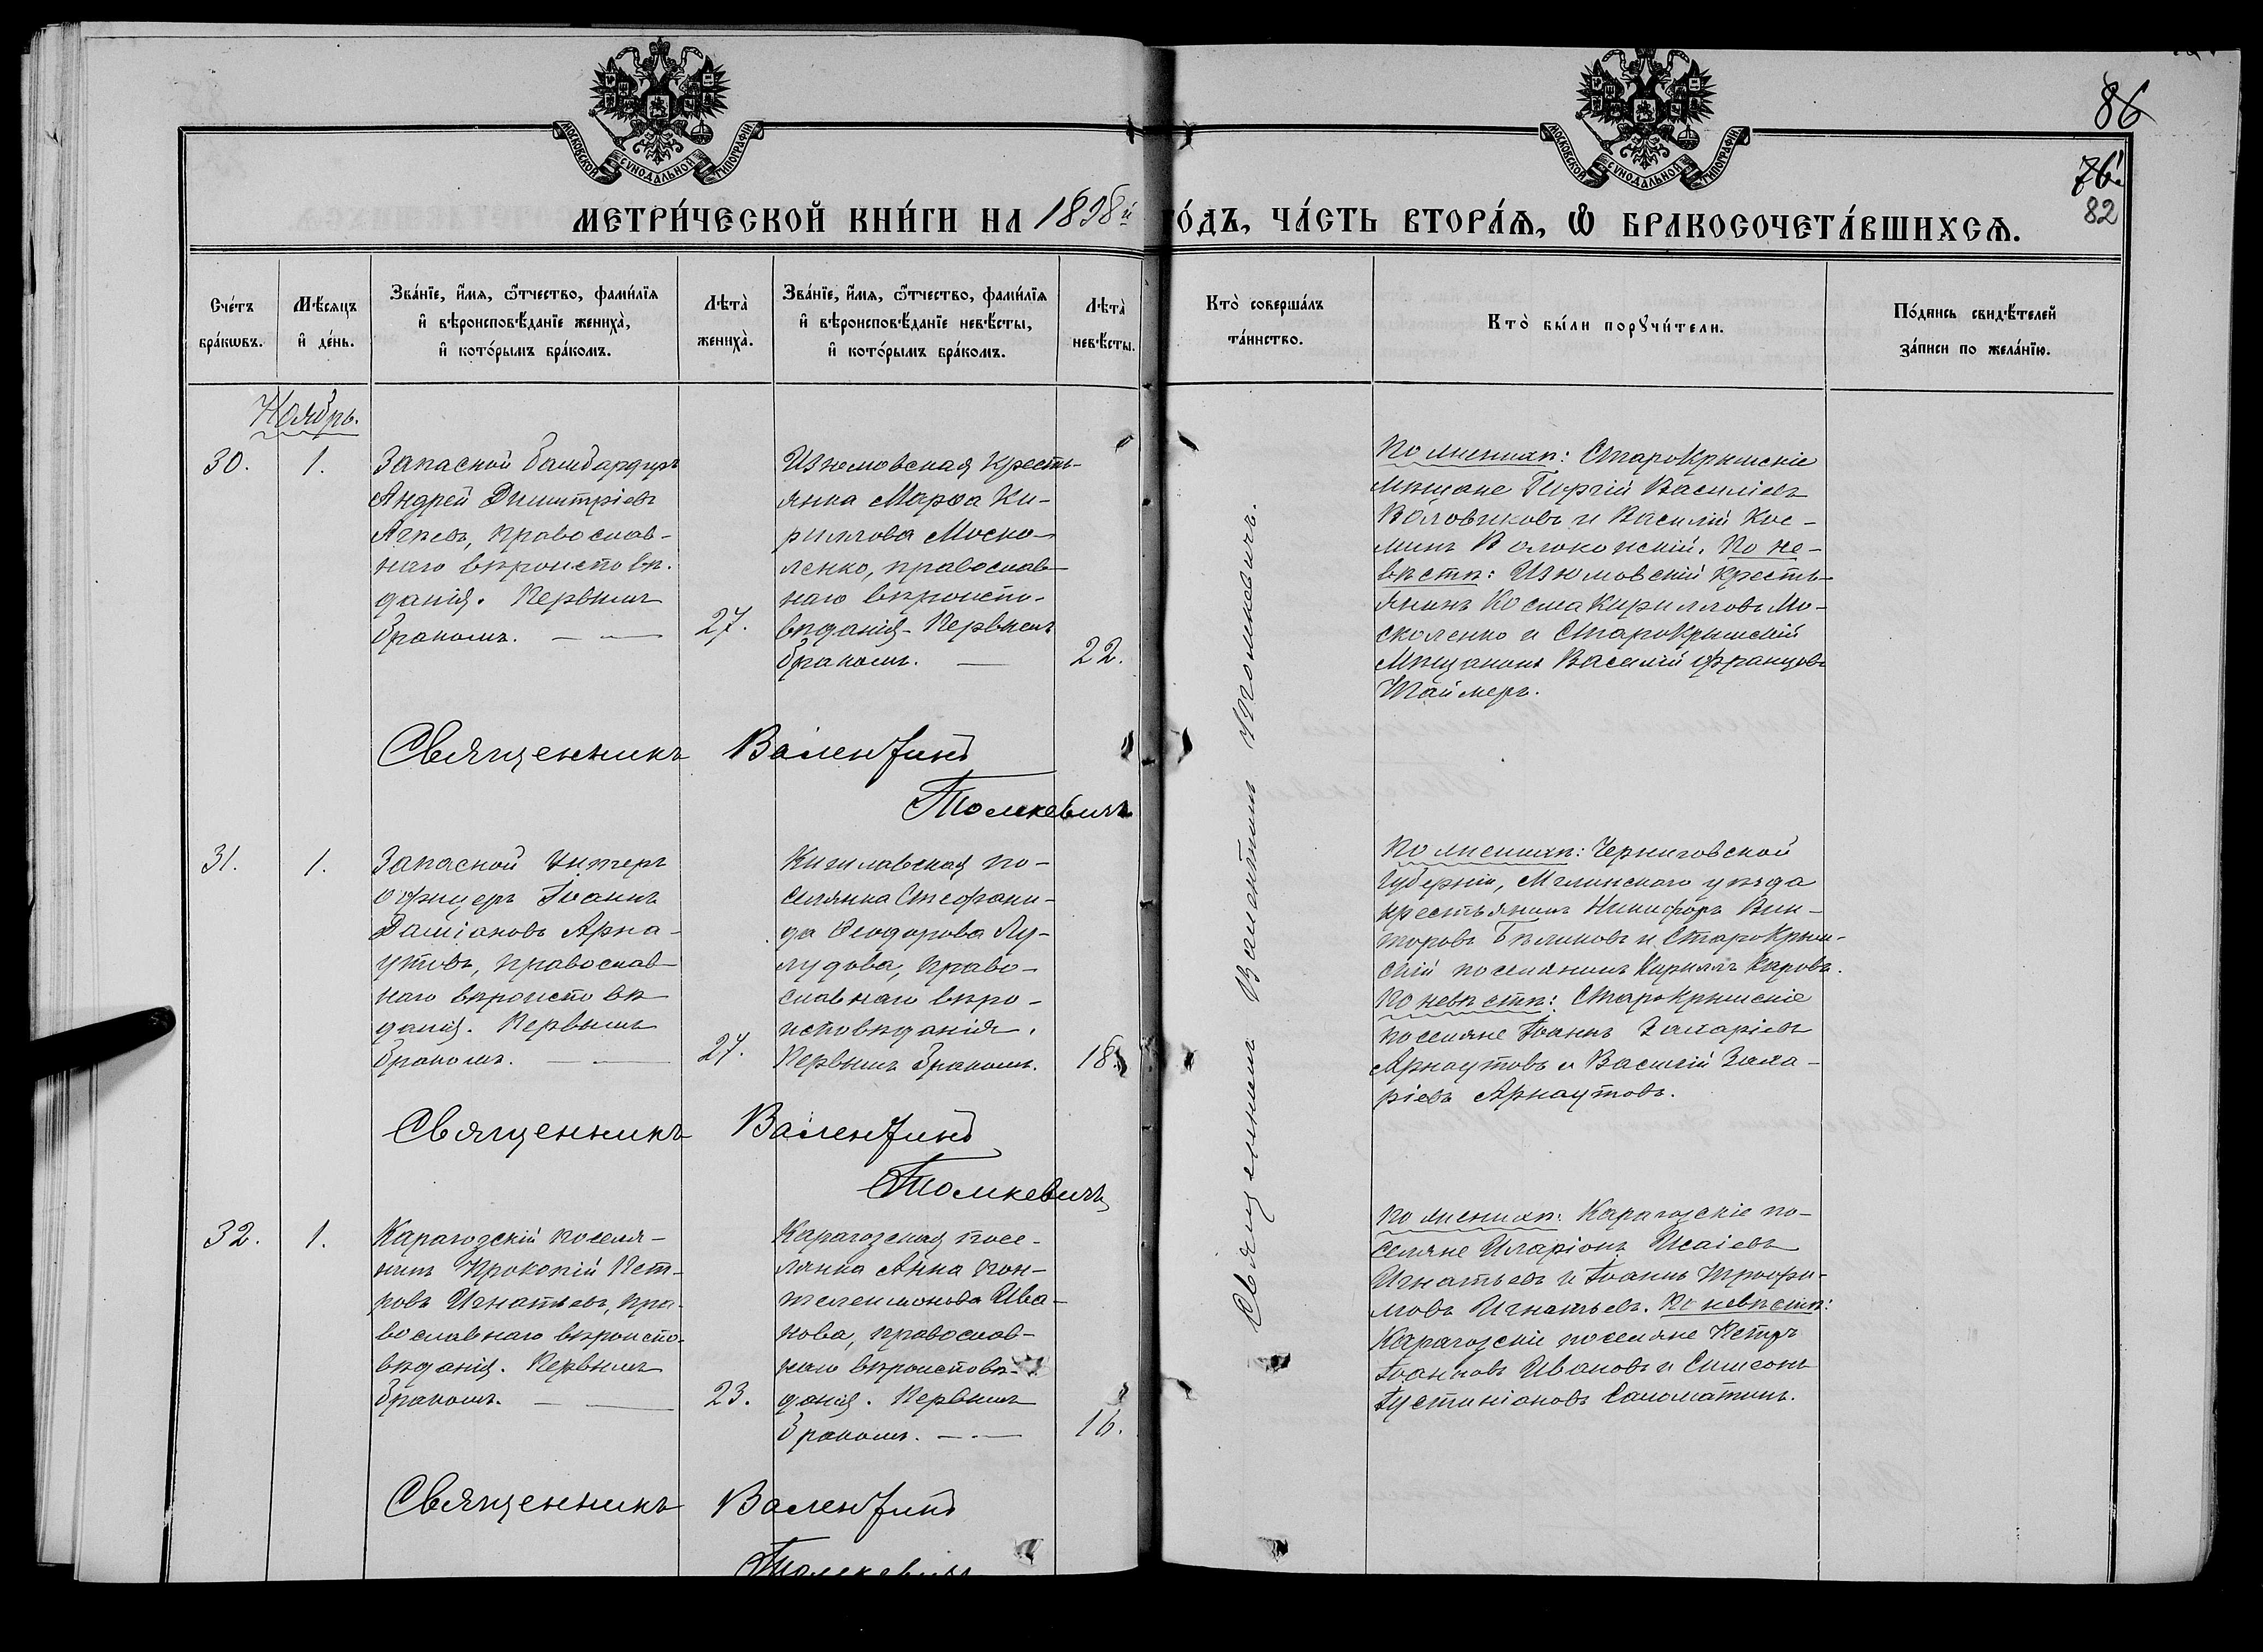 МОСКОВСКОЙ СѴНОДАЛЬНОЙ ТИПОГРАФІИ
МОСКОВСКОЙ СѴНОДАЛЬНОЙ ТИПОГРАФІИ
86
76
82
МЕТРИ́ЧЕСКОЙ КНИ́ГИ НА 1898й
О́ДЪ, ЧА́СТЬ ВТОРА́Ѧ, Ѽ БРАКОСОЧЕТА́ВШИХСѦ.
Сче́тъ
бра́кѡвъ.
Мѣ́сѧцъ
и҆ де́нь.
Зва́нїе, и҆́мѧ, ѻ҆́тчество, фами́лїѧ
и҆ вѣроисповѣ́данїе жениха̀,
и҆ кото́рымъ бра́комъ.
Лѣта̀
жениха̀.
Зва́нїе, и҆́мѧ, ѻ҆́тчество, фами́лїѧ
и҆ вѣроисповѣ́данїе невѣ́сты,
и҆ кото́рымъ бра́комъ.
Лѣта̀
невѣ́сты.
Кто̀ соверша́лъ
та́инство.
Кто̀ бы́ли порꙋчи́тели.
По́дпись свидѣ́телей
за́писи по жела́нїю.
Ноябрь.
30.
1.
Запасной бомбардиръ
Андрей Димитріевъ
Агѣевъ, православ-
наго вѣроисповѣ-
данія. Первымъ
бракомъ.
27.
Изюмовская кресть-
янка Марѳа Ки-
риллова Моско-
ленко, православ-
наго вѣроиспо-
вѣданія. Первымъ
бракомъ.
22.
Священникъ Валентинъ Томкевичъ.
По женихѣ: Старокрымскіе
мѣщане Георгій Василіевъ
Воловиковъ и Василій Кос-
минъ Волоконскій. По не-
вѣстѣ: Изюмовскій кресть-
янинъ Косма Кирилловъ Мо-
сколенко и Старокрымскій
мѣщанинъ Василій Францовъ
Шаймеръ.
Священникъ Валентинъ
Томкевичъ
31.
1.
Запасной унтеръ
офицеръ Іоаннъ
Даміановъ Арна-
утовъ, православ-
наго вѣроисповѣ
данія. Первымъ
бракомъ.
27.
Кишлавская по-
селянка Стефани-
да Ѳеодорова Лу-
лудова, право-
славнаго вѣро-
исповѣданія.
Первымъ бракомъ.
18.
По женихѣ: Черниговской
губерніи, Мглинскаго уѣзда
крестьянинъ Никифоръ Вик-
торовъ Бѣликовъ и Старокрым-
скій поселянинъ Кириллъ Каровъ.
По невѣстѣ: Старокрымскіе
поселяне Іоаннъ Захаріевъ
Арнаутовъ и Василій Заха-
ріевъ Арнаутовъ.
Священникъ Валентинъ
Томкевичъ
32.
1.
Карагозскій поселя-
нинъ Прокопій Пет-
ровъ Игнатьевъ, пра-
вославнаго вѣроиспо-
вѣданія. Первымъ
бракомъ.
23.
Карагозская посе-
лянка Анна Пан-
телеимонова Ива-
нова, православ-
наго вѣроисповѣ-
данія. Первымъ
бракомъ.
16.
По женихѣ: Карагозскіе по-
селяне Иларіонъ Исаіевъ
Игнатьевъ и Іоаннъ Трофи-
мовъ Игнатьевъ. По невѣстѣ:
Карагозскіе поселяне Петръ
Іоанновъ Ивановъ и Симеонъ
Іустиніановъ Саломатинъ.
Священникъ Валентинъ
Томкевичъ